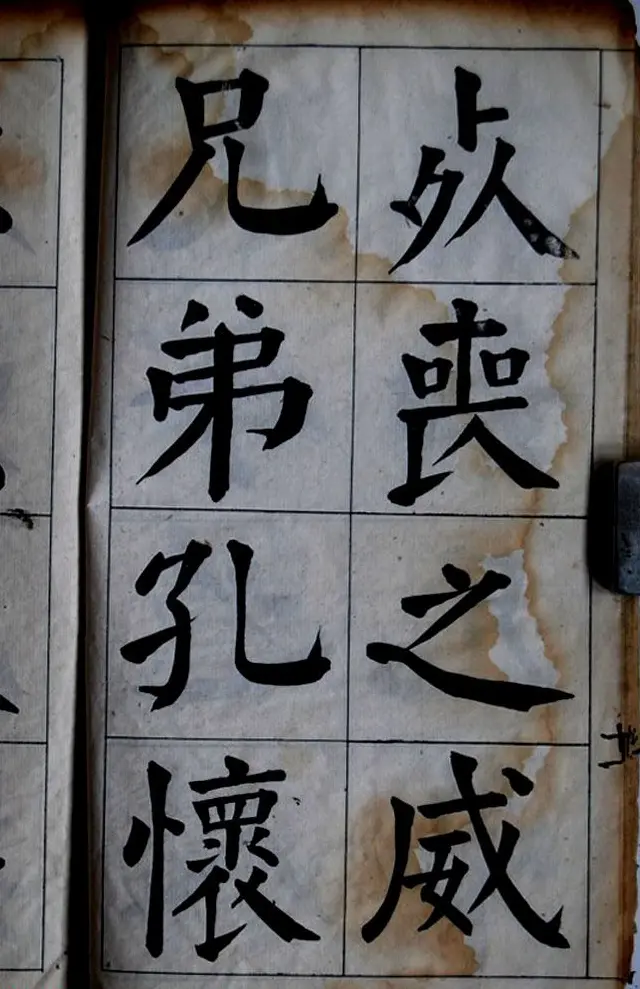 死喪之威
兄弟孔懷